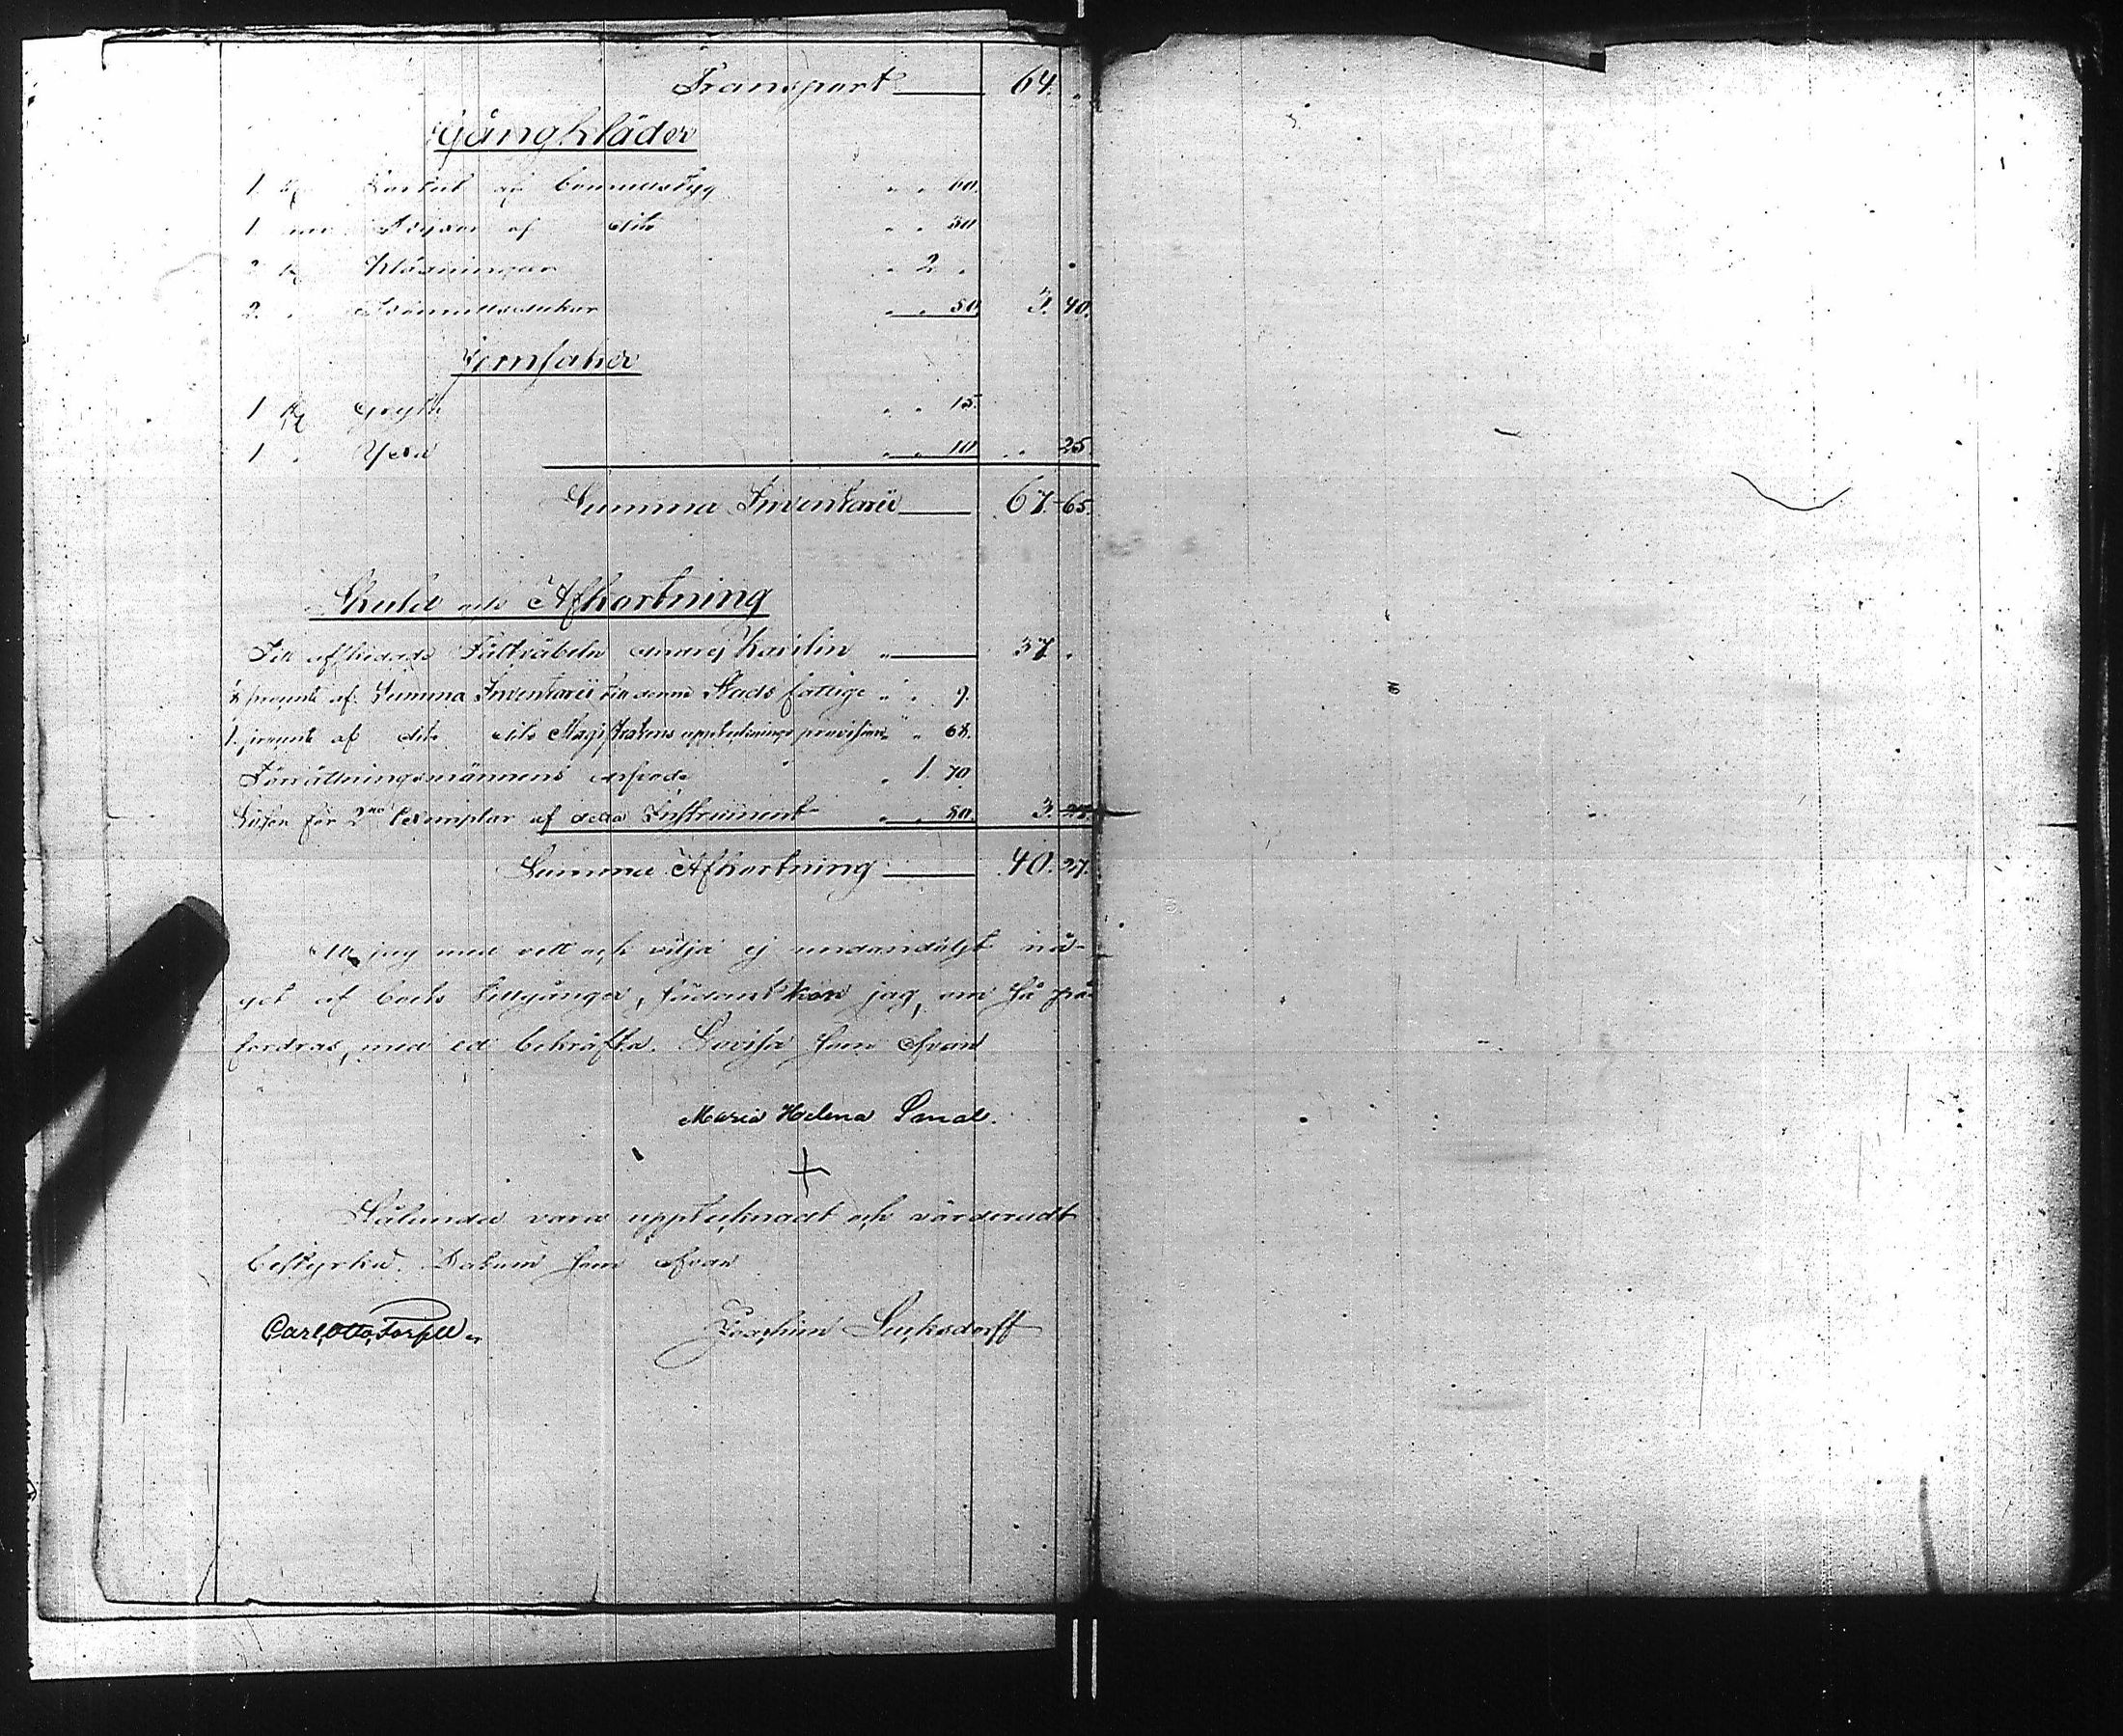 Transport 64. „
Gångkläder
1 st Kortel af bomullstyg „ „ 60.
1 „ Tröjor af dito „ „ 30
2 st Klädningar „ 2 „
2. „ Bomullsdukar „ „ 50 3. 40.
Jernsaker
1 st Gryta „ „ 15.
1 „ Yxa „ „ 10 „ „ 25.
Summa Inventarii 67. 65.
Skuld och Afkortning
Till aflidade Fältväbeln Kavilin „ 37 „
procent af Summa Inventarii till denne Stads fattige „ „ 9.
1. procent af dito dito Magistratens uppteckningsprovision „ „ 68.
Förrättningsmännens arfvode „ 1. 70
Lösen för 2ne Exemplar af detta Instrument „ „ 80. 3. 27.
Summa Afkortning 40. 27.
Att jag med vett och vilja ej undandöljt nå-
got af boets tillgångar, sådant kan jag, om så på-
fordras, med ed bekräfta. Lovisa som ofvan
Maria Helena Sand.
+
Sålunda vara upptecknadt och värderadt
bestyrka. Datum som ofvan
Carl Otto Forsell Joachim Sucksdorff